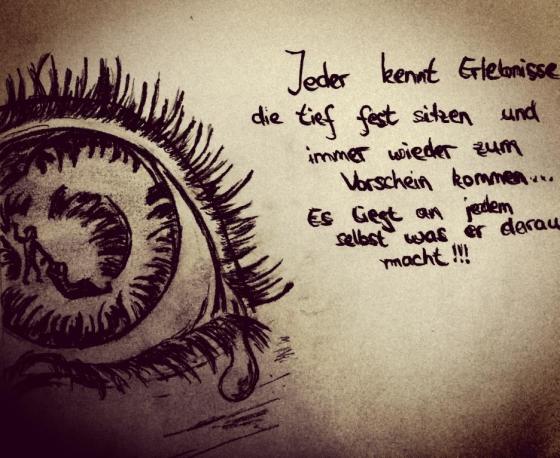 Jeder kennt Erlebnisse
die tief fest sitzen und
immer wieder zum
Vorschein kommen...
Es liegt an jedem
selbst was er derau
macht!!!